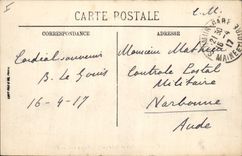 CARTE POSTALE
F.M.
CORRESPONDANCE
ADRESSE
Cordial souvenir
B. Le Gouis
16-4-17
Monsieur Mathieu
Controle Postal
Militaire
Narbonne
Aude